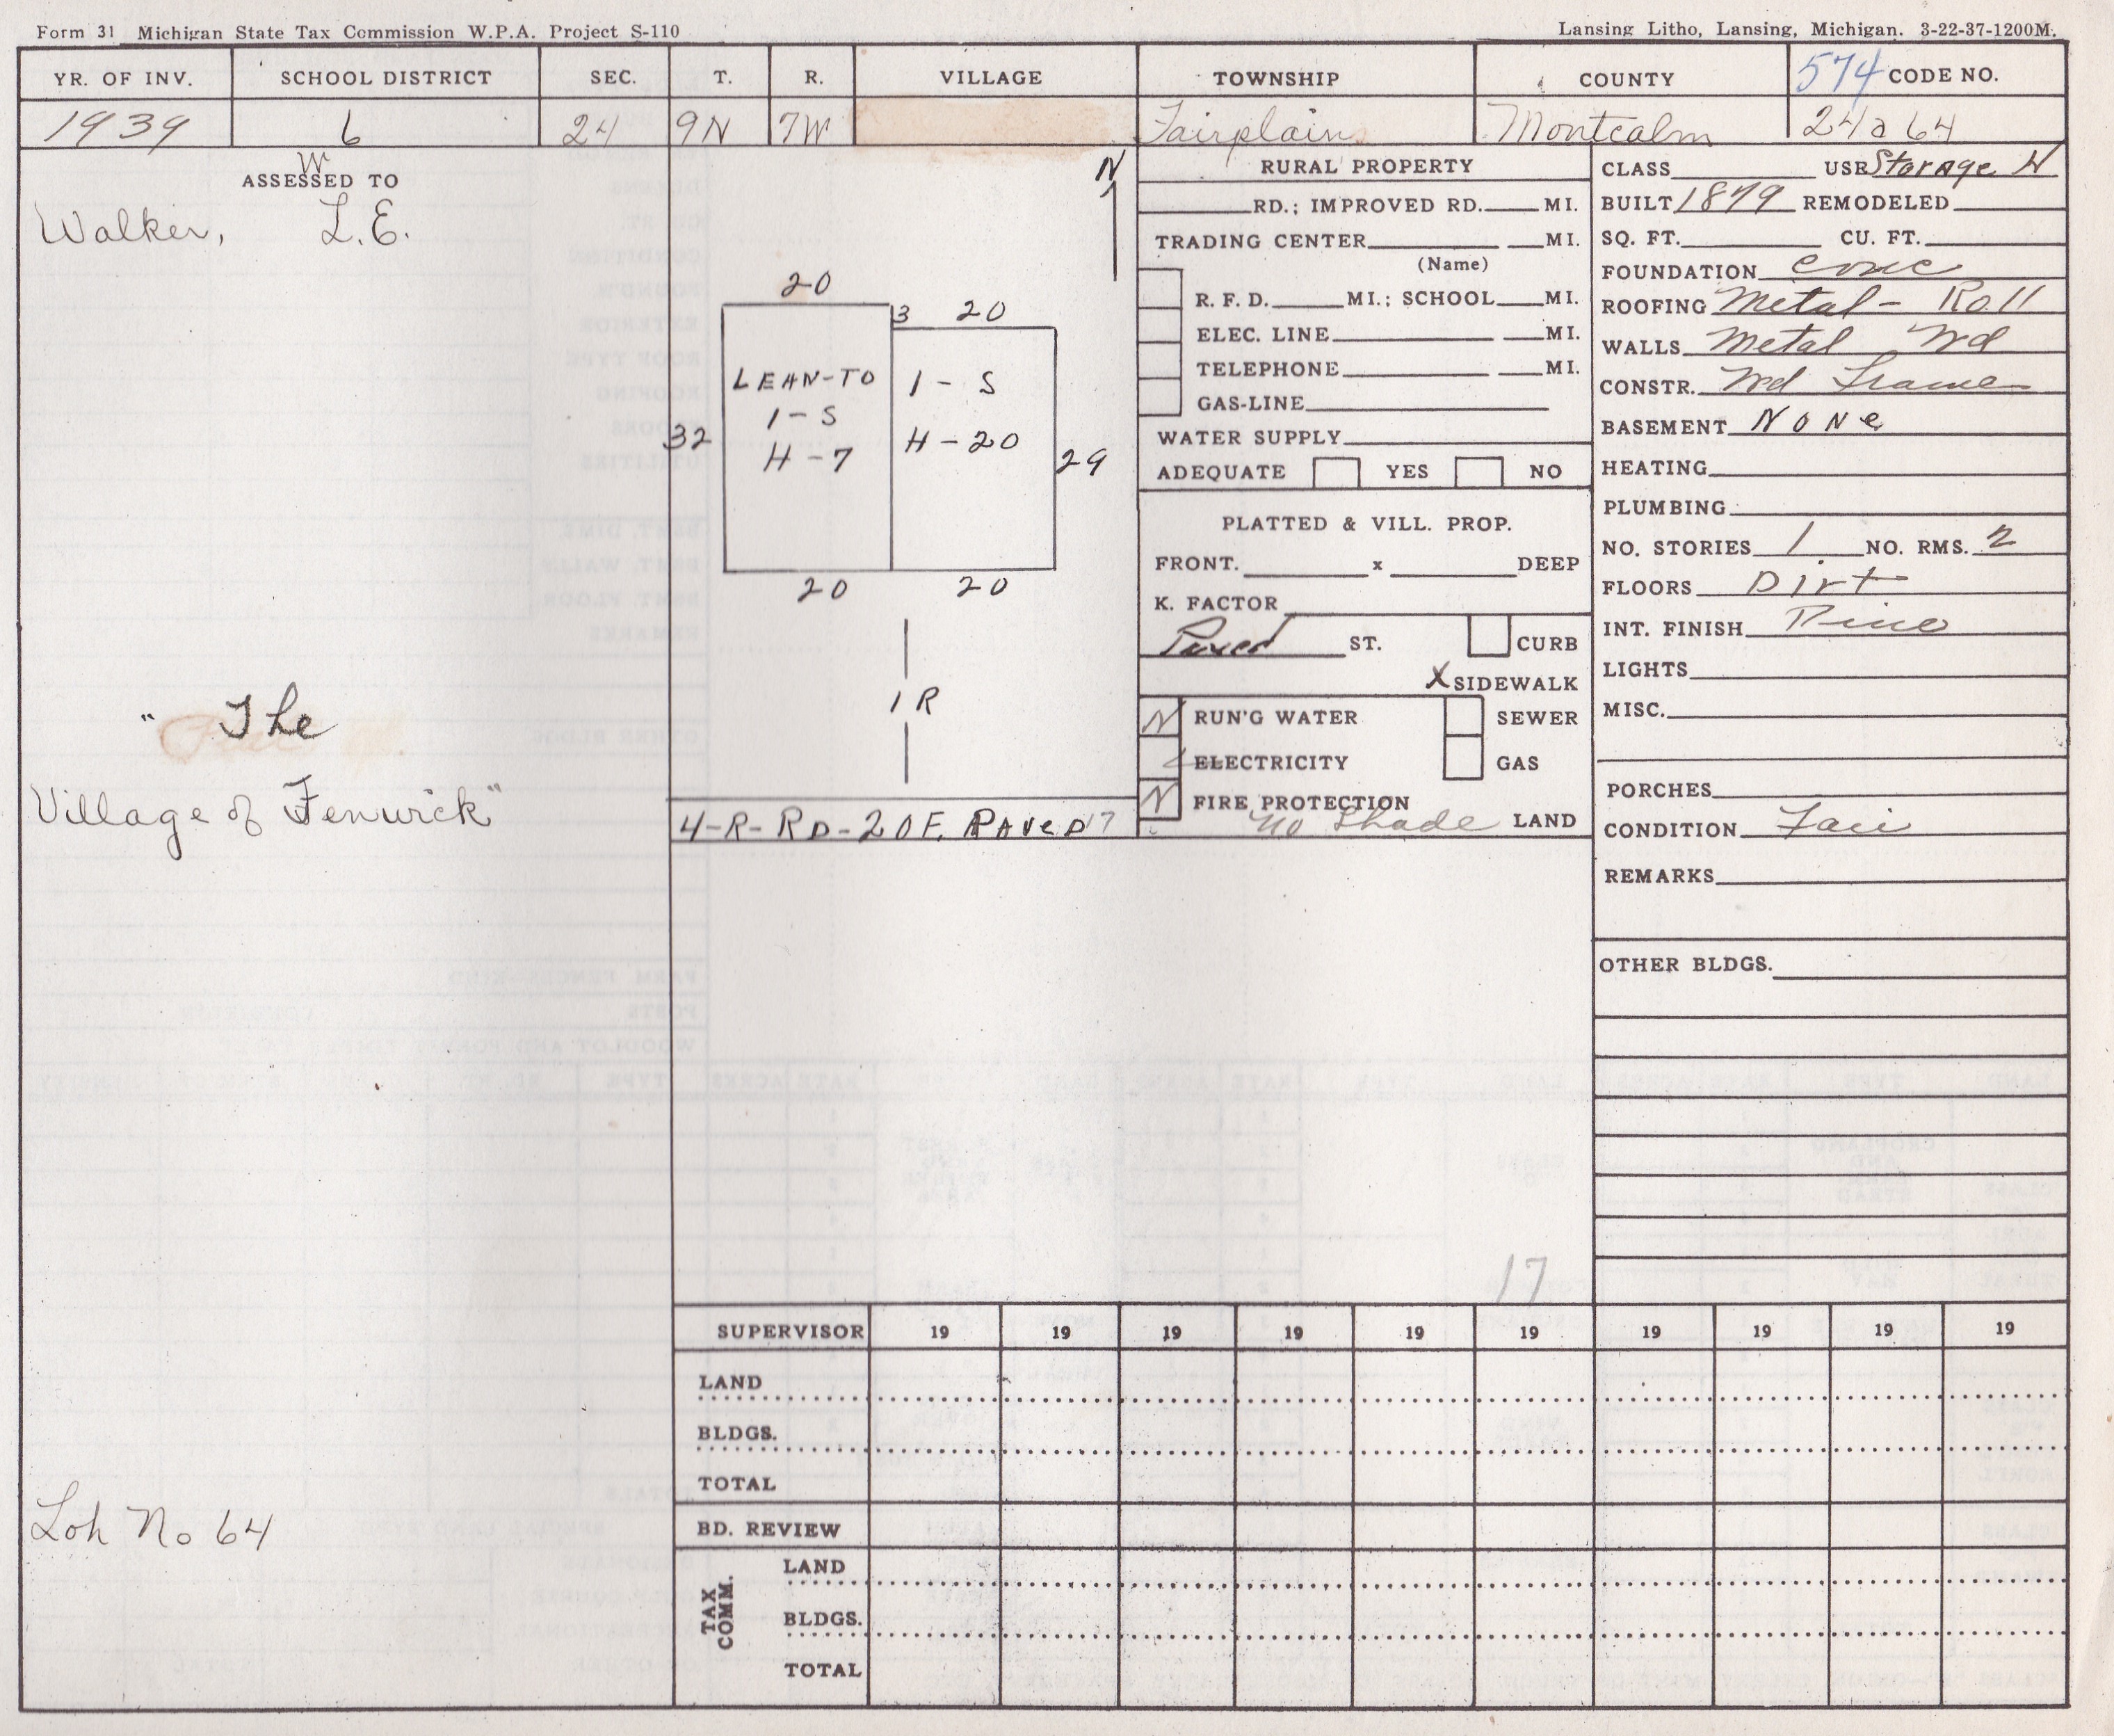 Form 31 Michigan State Tax Commission W.P.A. Project S-110
Lansing Litho, Lansing, Michigan. 3-22-37-1200M.
YR. OF INV. SCHOOL DISTRICT SEC. T. R. VILLAGE TOWNSHIP COUNTY 574 CODE NO.
1939 6 24 9N 7W Fairplains Montcalm 24a64
W
ASSESSED TO
Walker, L.E.
" The
Village of Fenwick"
Loh No 64
N
20
3 20
LEAN-TO 1-S
1-S
H-7 H-20
32 29
20 20
1R
4-R-RD-20F. PAVED 17
RURAL PROPERTY
RD.; IMPROVED RD. MI.
TRADING CENTER MI.
(Name)
R. F. D. MI.; SCHOOL MI.
ELEC. LINE MI.
TELEPHONE MI.
GAS-LINE
WATER SUPPLY
ADEQUATE YES NO
PLATTED & VILL. PROP.
FRONT. x DEEP
K. FACTOR
Paved ST. CURB
X SIDEWALK
N RUN'G WATER SEWER
ELECTRICITY GAS
N FIRE PROTECTION
No Shade LAND
17
CLASS USE Storage H
BUILT 1879 REMODELED
SQ. FT. CU. FT.
FOUNDATION conc
ROOFING Metal - Roll
WALLS Metal Wd
CONSTR. Wd Frame
BASEMENT None
HEATING
PLUMBING
NO. STORIES 1 NO. RMS. 2
FLOORS Dirt
INT. FINISH Pine
LIGHTS
MISC.
PORCHES
CONDITION Fair
REMARKS
OTHER BLDGS.
SUPERVISOR 19 19 19 19 19 19 19 19 19 19
LAND
BLDGS.
TOTAL
BD. REVIEW
TAX COMM.
LAND
BLDGS.
TOTAL